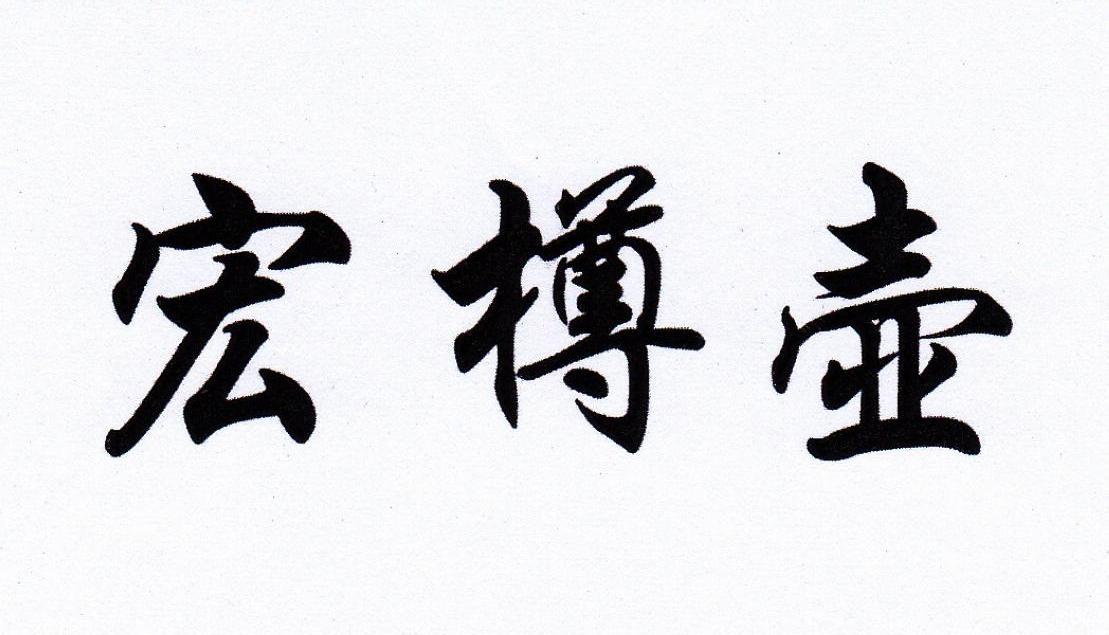 宏樽壶